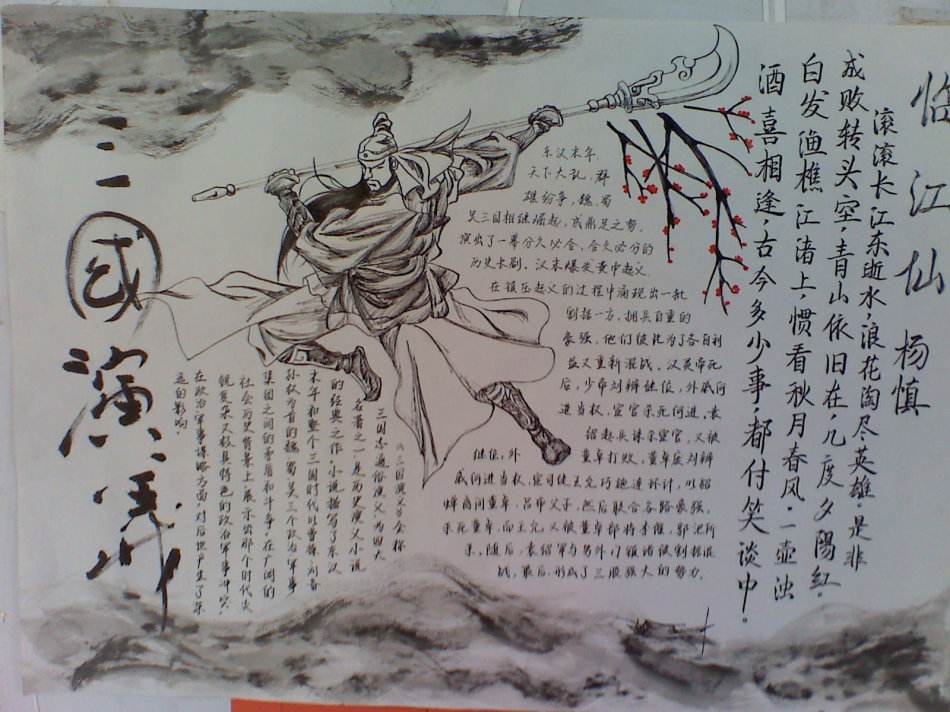 三國演義
临江仙 杨慎
滚滚长江东逝水，浪花淘尽英雄。是非
成败转头空，青山依旧在，几度夕陽红。
白发渔樵江渚上，惯看秋月春风。一壶浊
酒喜相逢，古今多少事，都付笑谈中。
东汉末年，
天下大乱，群
雄纷争，魏、蜀
吴三国相继崛起，成鼎足之势。
演出了一幕分久必合，合久必分的
历史长剧。汉末爆发黄巾起义，
在镇压起义的过程中涌现出一批
割据一方，拥兵自重的
豪强，他们彼此为了各自利
益又重新混战，汉灵帝死
后，少帝刘辨继位，外戚何
进当权，宦官杀死何进，袁
绍起兵诛杀宦官，又被
董卓打败，董卓废刘辨
继位，外
戚何进当权，宦司徒王允巧施连环计，以貂
蝉离间董卓、吕布父子，然后联合各路豪强，
杀死董卓，而王允又被董卓部将李傕、郭汜所
杀，随后，袁绍军与另外门镇诸侯割据混
战，最后，形成了三股强大的势力。
《三国演义》全称
三国志通俗演义为四大
名著之一是历史演义小说
的经典之作。小说描写了东汉
末年和整个三国时代以曹操、刘备
孙权为首的魏蜀吴三个政治军事
集团之间的矛盾和斗争，在广阔的
社会历史背景上展示出那个时代尖
锐复杂又极具特色的政治军事冲突
在政治军事谋略方面，对后世产生了深
远的影响。